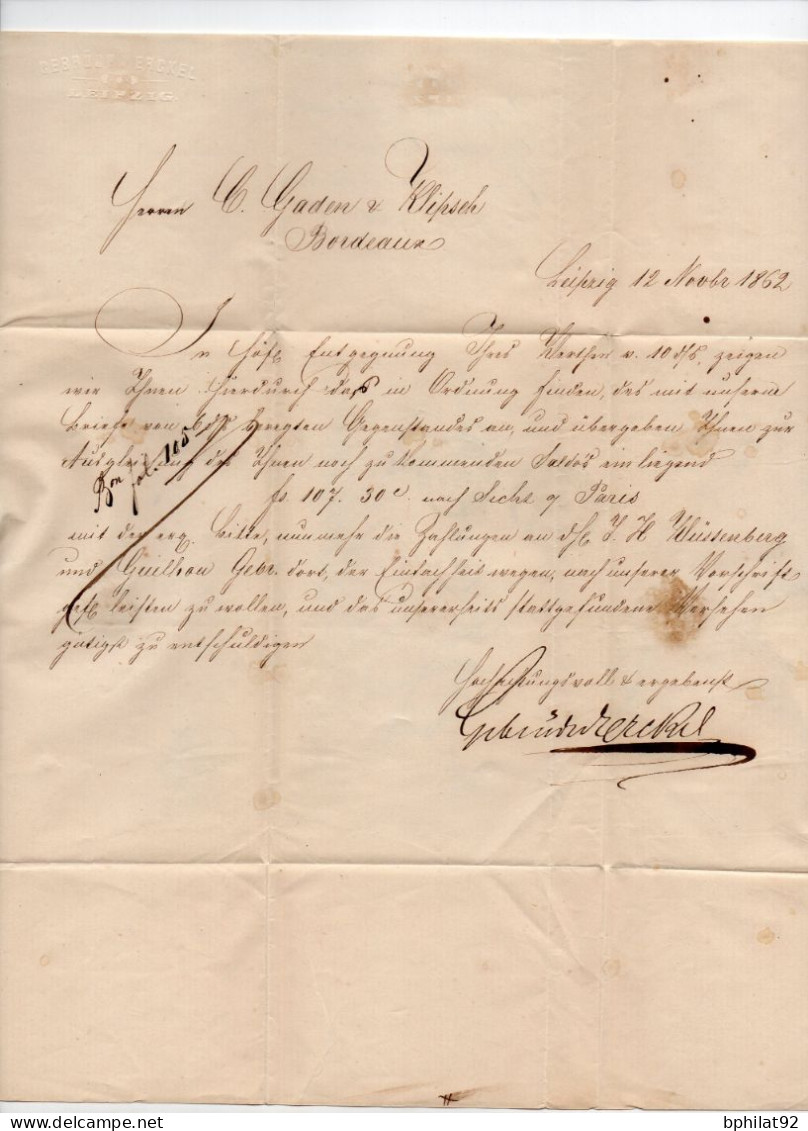 GEBRÜDER ERCKEL
LEIPZIG
Herren C. Gaden & Klipsch
Bordeaux
Leipzig 12 Novbr 1862
In höfl. Entgegnung Ihres Werthen v. 10 ds/. zeigen
wir Ihnen hierdurch das in Ordnung finden, des mit unserm
Briefe von 6 ds/. beregten Gegenstandes an, und übergeben Ihnen zur
Ausgleichung des Ihnen noch zukommenden Saldo's einliegend
fs 107. 30c. nach Sicht Paris
mit der erg. Bitte, nunmehr die Zahlungen an J. H. Wüstenberg
und Guilhou Gebr. dort, der Einfachheit wegen, nach unserer Vorschrift
gefl. leisten zu wollen, und das unsererseits stattgefundene Versehen
gütigst zu entschuldigen
Bon
fol. 105
Hochachtungsvoll & ergebenst
Gebrüder Erckel
bphilat92